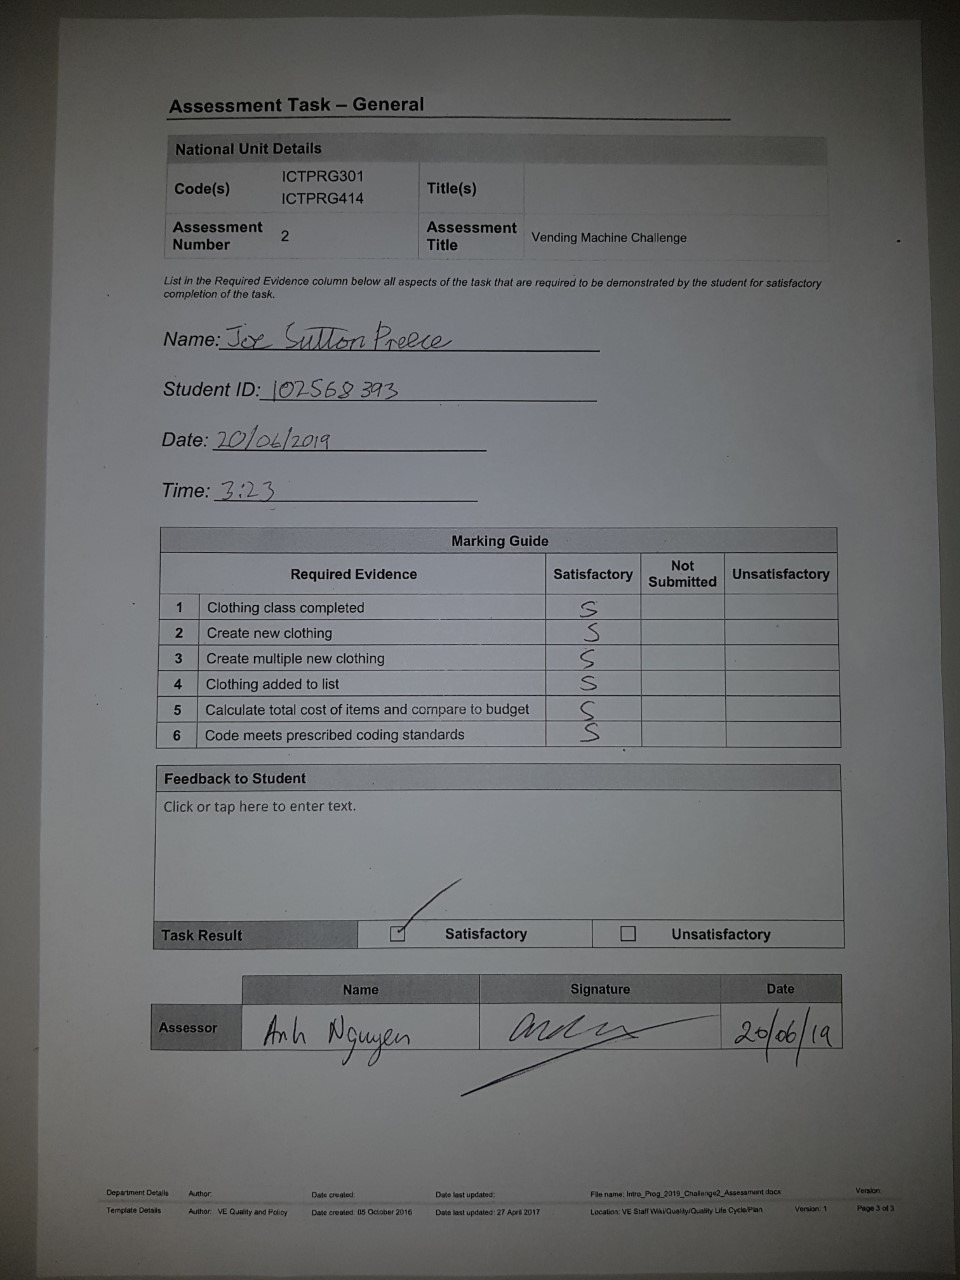 Assessment Task – General
National Unit Details
Code(s) ICTPRG301 Title(s)
ICTPRG414
Assessment Number 2 Assessment Title Vending Machine Challenge
List in the Required Evidence column below all aspects of the task that are required to be demonstrated by the student for satisfactory
completion of the task.
Name: Joe Sutton Preece
Student ID: 102568393
Date: 20/06/2019
Time: 3:23
Marking Guide
Required Evidence Satisfactory Not Submitted Unsatisfactory
1 Clothing class completed S
2 Create new clothing S
3 Create multiple new clothing S
4 Clothing added to list S
5 Calculate total cost of items and compare to budget S
6 Code meets prescribed coding standards S
Feedback to Student
Click or tap here to enter text.
Task Result Satisfactory Unsatisfactory
Name Signature Date
Assessor Anh Nguyen 20/06/19
Department Details Author: Date created: Date last updated: File name: Intro_Prog_2019_Challenge2_Assessment.docx Version:
Template Details Author: VE Quality and Policy Date created: 05 October 2016 Date last updated: 27 April 2017 Location: VE Staff Wiki/Quality/Quality Life Cycle/Plan Version: 1 Page 3 of 3